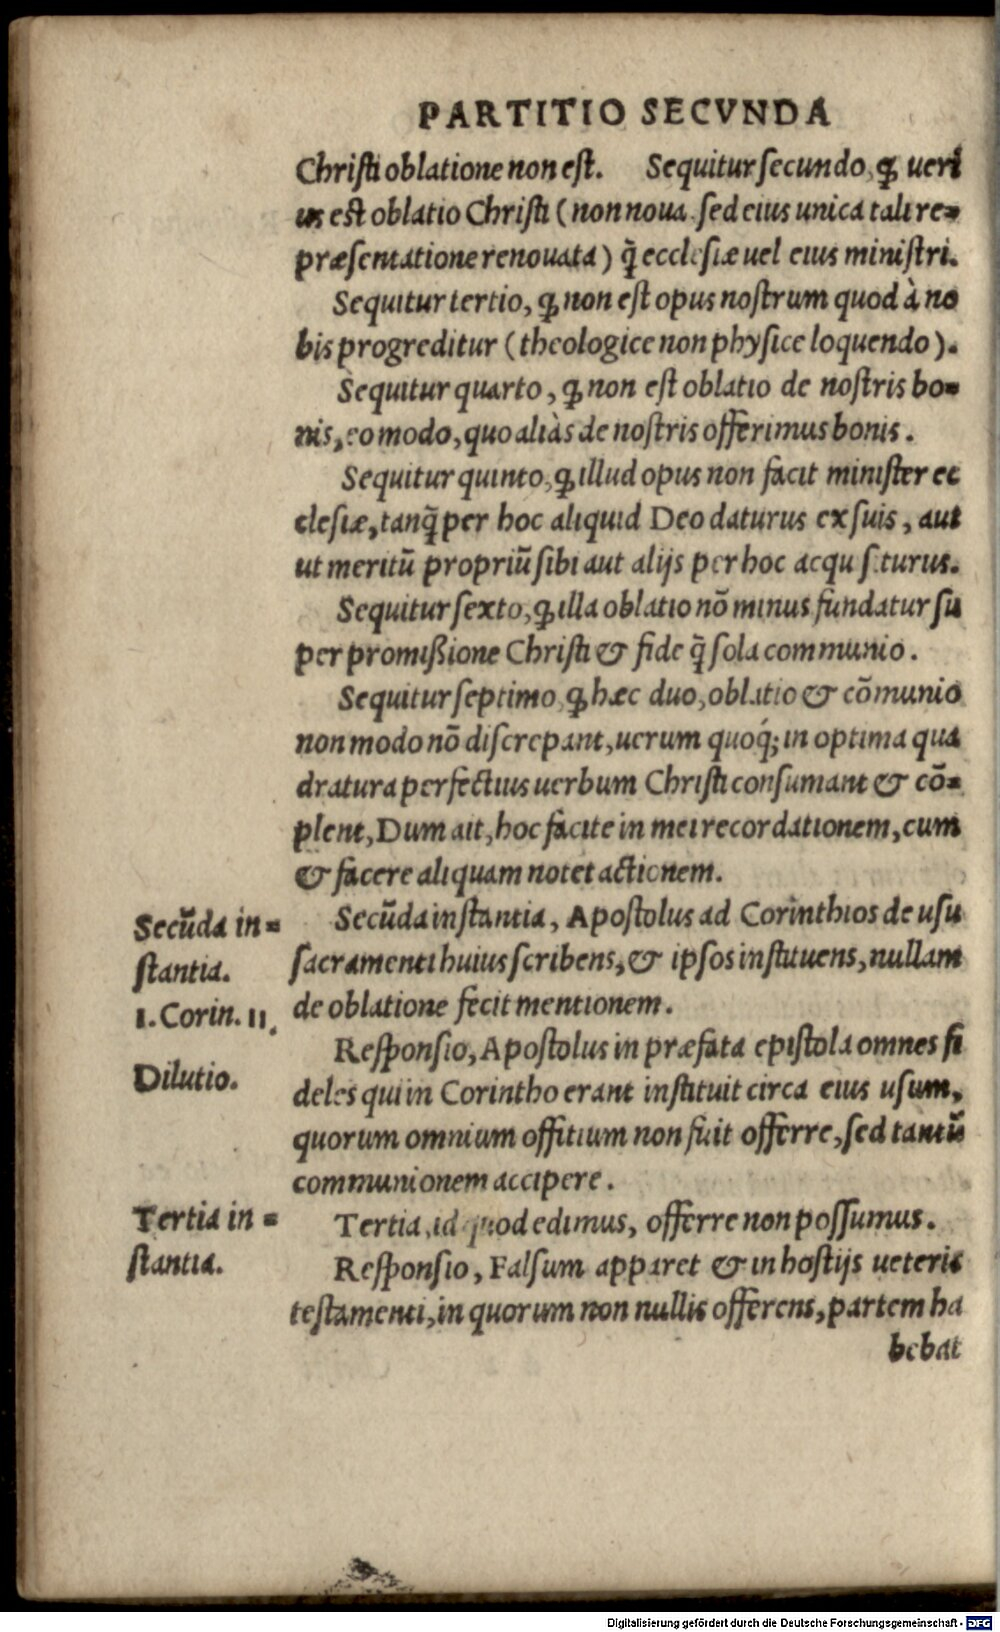 PARTITIO SECVNDA
Christi oblatione non est. Sequitur secundo, ꝙ ueri
us est oblatio Christi (non noua sed eius unica tali re=
præsentatione renouata) q̃ ecclesiæ uel eius ministri.
Sequitur tertio, ꝙ non est opus nostrum quod à no
bis progreditur (theologice non physice loquendo).
Sequitur quarto, ꝙ non est oblatio de nostris bo=
nis, eo modo, quo aliàs de nostris offerimus bonis.
Sequitur quinto, ꝙ illud opus non facit minister ec
clesiæ, tanq̃ per hoc aliquid Deo daturus ex suis, aut
ut meritũ propriũ sibi aut alijs per hoc acqu s.turus.
Sequitur sexto, ꝙ illa oblatio nõ minus fundatur su
per promißione Christi & fide q̃ sola communio.
Sequitur septimo, ꝙ hæc duo, oblatio & cõmunio
non modo nõ discrepant, uerum quoq́; in optima qua
dratura perfectius uerbum Christi consumant & cõ=
plent, Dum ait, hoc facite in mei recordationem, cum
& facere aliquam notet actionem.
Secũda in=
stantia.
1. Corin. 11.
Secũda instantia, Apostolus ad Corinthios de usu
sacramenti huius scribens, & ipsos instituens, nullam
de oblatione fecit mentionem.
Dilutio.
Responsio, Apostolus in præfata epistola omnes fi
deles qui in Corintho erant instituit circa eius usum,
quorum omnium offitium non fuit offerre, sed tantũ
communionem accipere.
Tertia in=
stantia.
Tertia, id quod edimus, offerre non possumus.
Responsio, Falsum apparet & in hostijs ueteris
testamenti, in quorum non nullis offerens, partem ha
bebat
Digitalisierung gefördert durch die Deutsche Forschungsgemeinschaft - DFG